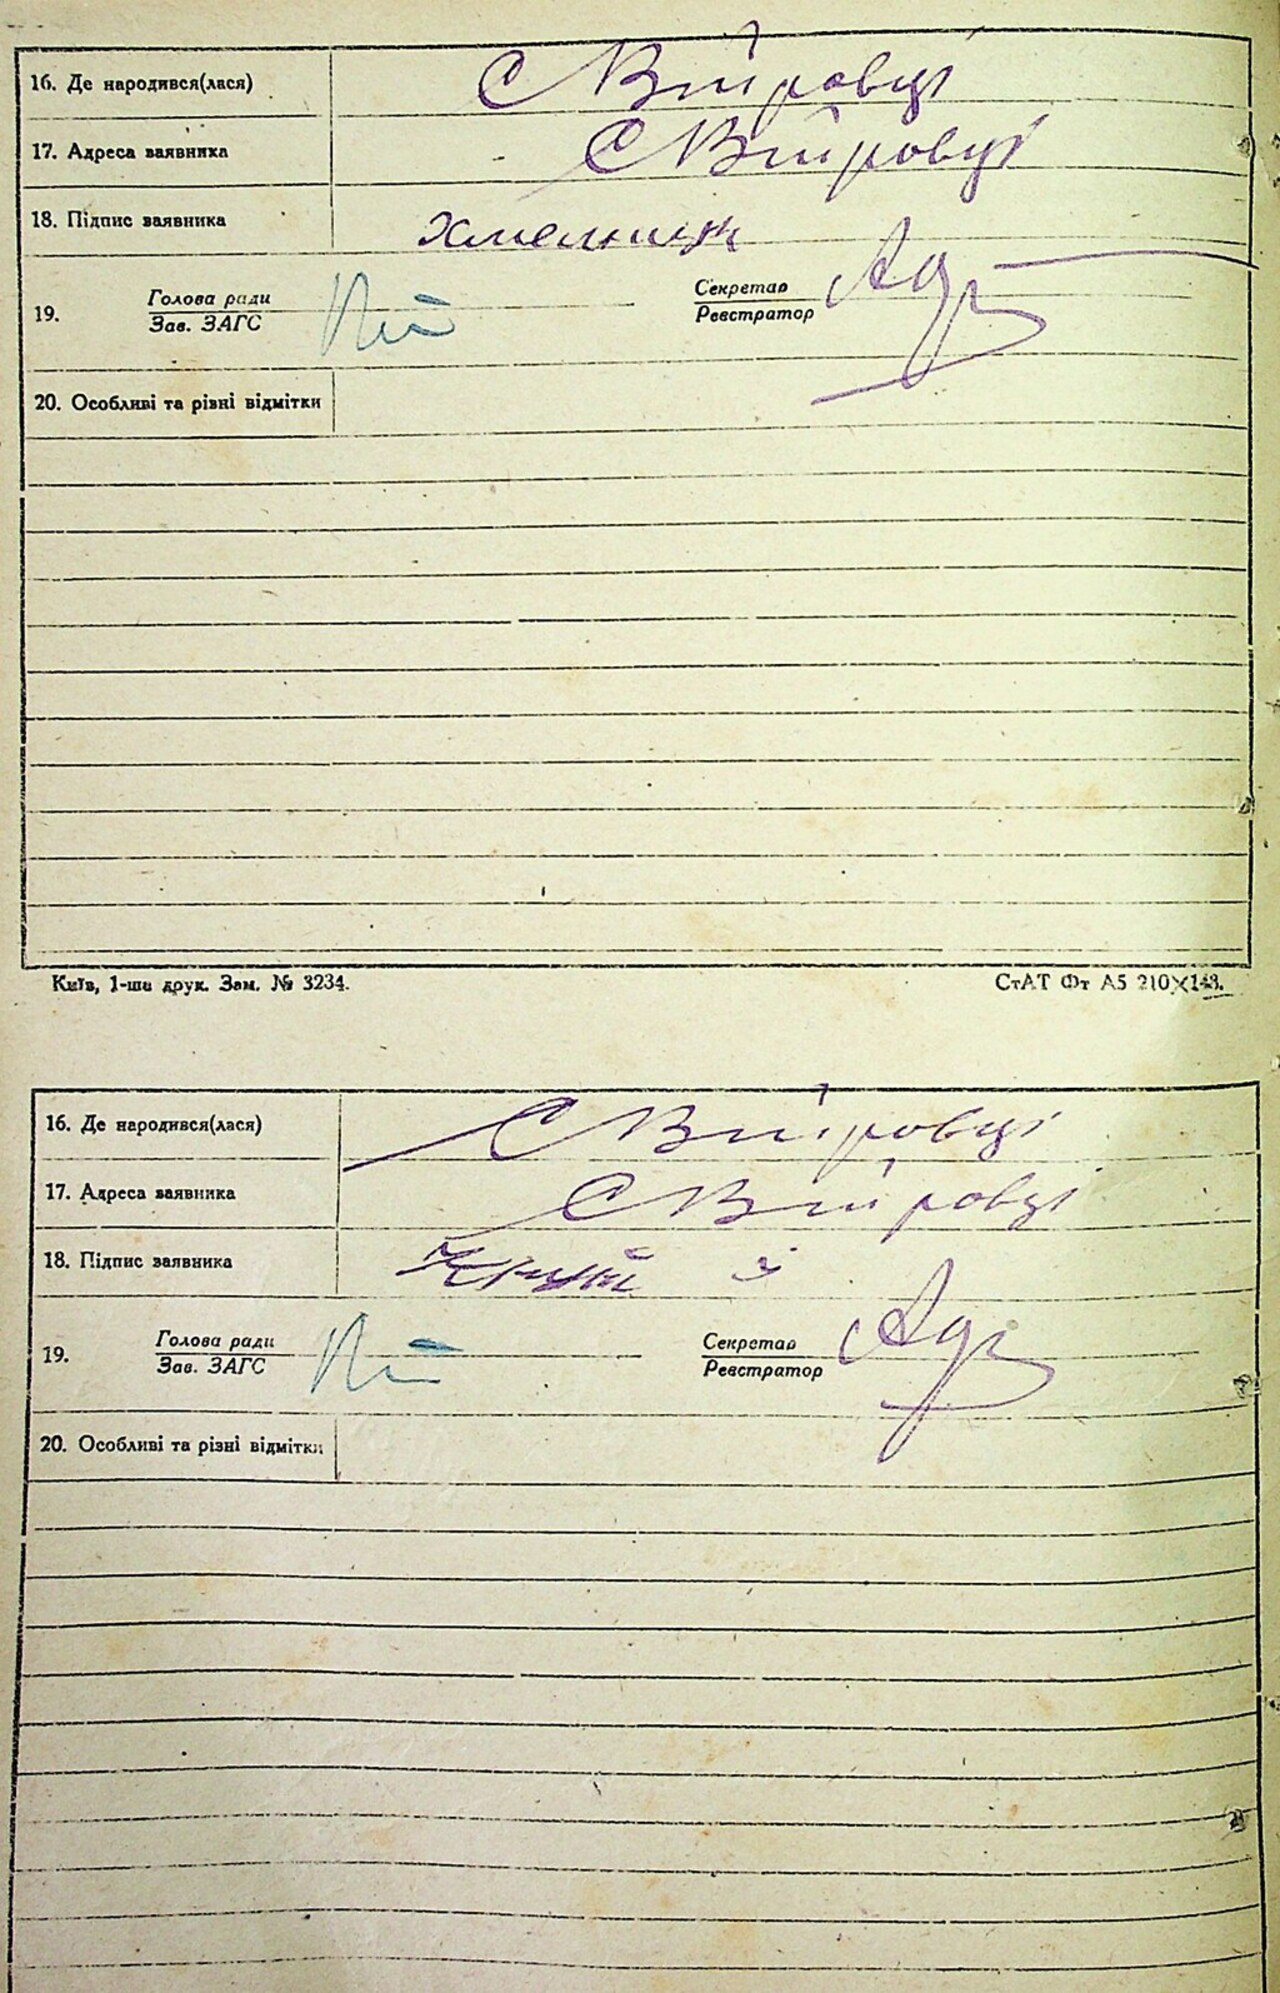 16. Де народився(лася) С Війровці
17. Адреса заявника С Війровці
18. Підпис заявника Хмельницк
Голова ради Секретар
19.
Зав. ЗАГС Реєстратор
20. Особливі та різні відмітки
Київ, 1-ша друк. Зам. № 3234. СтАТ Фт А5 210×148.
16. Де народився(лася) С Війровці
17. Адреса заявника С Війровці
18. Підпис заявника
Голова ради Секретар
19.
Зав. ЗАГС Реєстратор
20. Особливі та різні відмітки